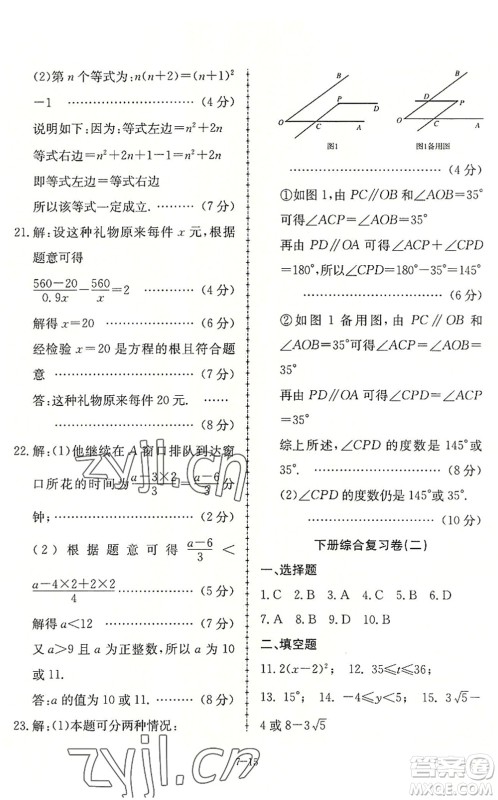 (2)第 n 个等式为:n(n+2)=(n+1)²
-1 ………………………… (4分)
说明如下:因为:等式左边=n²+2n
等式右边=n²+2n+1-1=n²+2n
即等式左边=等式右边
所以该等式一定成立. ……… (7分)
21. 解:设这种礼物原来每件 x 元,根据
题意可得
(560-20)/(0.9x) - 560/x = 2 …………… (4分)
解得 x=20 ………………… (6分)
经检验 x=20 是方程的根且符合题
意 ………………………… (7分)
答:这种礼物原来每件 20 元.
………………………………… (8分)
22. 解:(1)他继续在 A 窗口排队到达窗
口所花的时间为 (a-3×2)/3 = (a-6)/3 分
钟; ………………………… (4分)
(2) 根据题意可得 (a-6)/3 <
(a-4×2+2×2)/4 ……………… (5分)
解得 a<12 ………………… (7分)
又 a>9 且 a 为正整数,所以 a=10
或 11.
答:a 的值为 10 或 11. …… (8分)
23. 解:(1)本题可分两种情况:
B
P
D
O
C
A
图1
B
D
P
O
C
A
图1备用图
………………………………… (4分)
①如图 1,由 PC∥OB 和∠AOB=
35°可得∠ACP=∠AOB=35°
再由 PD∥OA 可得∠ACP+∠CPD
=180°,所以∠CPD=180°-35°=145°
………………………………… (6分)
②如图 1 备用图,由 PC∥OB 和
∠AOB=35°可得∠ACP=∠AOB=
35°
再由 PD∥OA 可得∠CPD=∠ACP
=35°
综上所述,∠CPD 的度数是 145°或
35°. ………………………… (8分)
(2)∠CPD 的度数仍是 145°或 35°.
………………………………… (10分)
下册综合复习卷(二)
一、选择题
1. C 2. D 3. C 4. B 5. D 6. B
7. A 8. D 9. A 10. D
二、填空题
11. 2(x-2)²; 12. 35≤t≤36;
13. 15°; 14. -4≤y<5; 15. 3√5-
4或8-3√5
zyjl.cn
zyjl.cn
答案圈